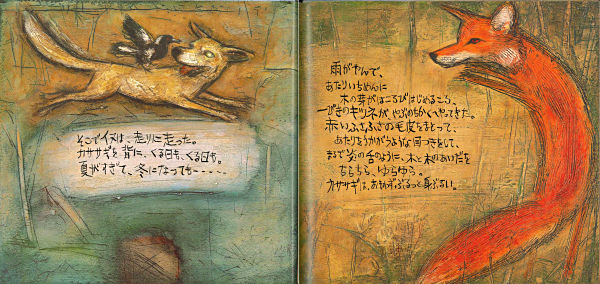 そこでイヌは、走りに走った。
カササギを背に、くる日も、くる日も。
夏がすぎて、冬になっても‐‐‐‐‐
雨がやんで、
あたりいちめんに
木の芽がほころびはじめるころ、
一ぴきのキツネが やぶのちかくへやってきた。
赤いふさふさの毛皮をまとって、
あたりをうかがうような目つきをして、
まるで炎の舌のように、木と木のあいだを
ちらちら、ゆらゆら。
カササギは、おもわずぶるっと身ぶるい。